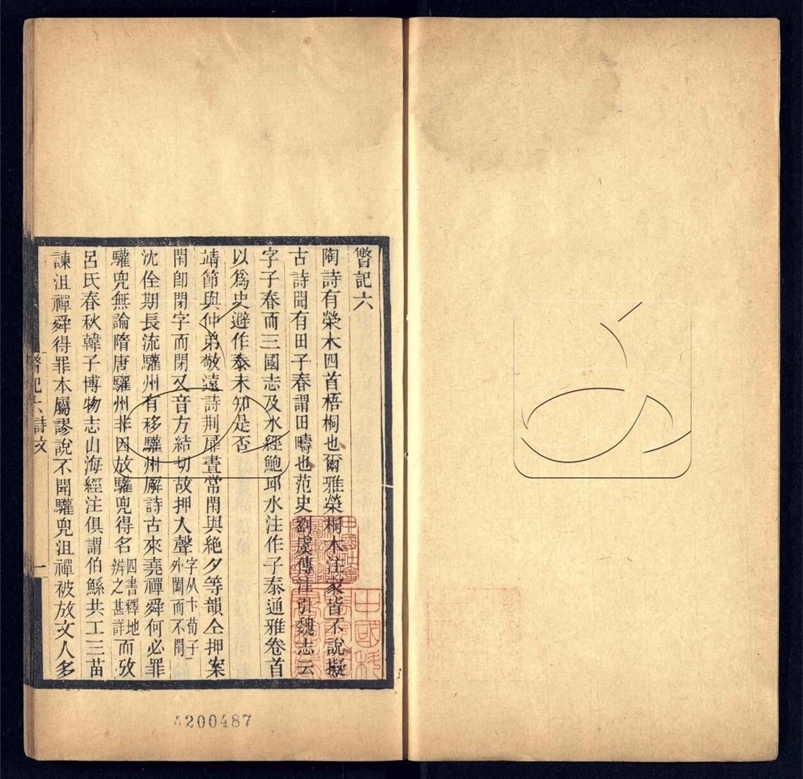 瞥記六
陶詩有榮木四首梧桐也爾雅榮桐木注家皆不說擬
古詩聞有田子春謂田疇也范史劉虞傳注引魏志云
字子春而三國志及水經鮑邱水注作子泰通雅卷首
以爲史避作泰未知是否
靖節與仲弟敬遠詩荆扉晝常閈與絶夕等韻仝押案
閈卽閉字而閉又音方結切故押入聲字从卞荀子外闔而不閈
沈佺期長流驩州有移驩州廨詩古來堯禪舜何必罪
驩兜無論隋唐驩州非因放驩兜得名四書釋地辨之甚詳而攷
呂氏春秋韓子博物志山海經注俱謂伯鯀共工三苗
諫沮禪舜得罪本屬謬說不聞驩兜沮禪被放文人多
瞥記六詩文
一
4200487